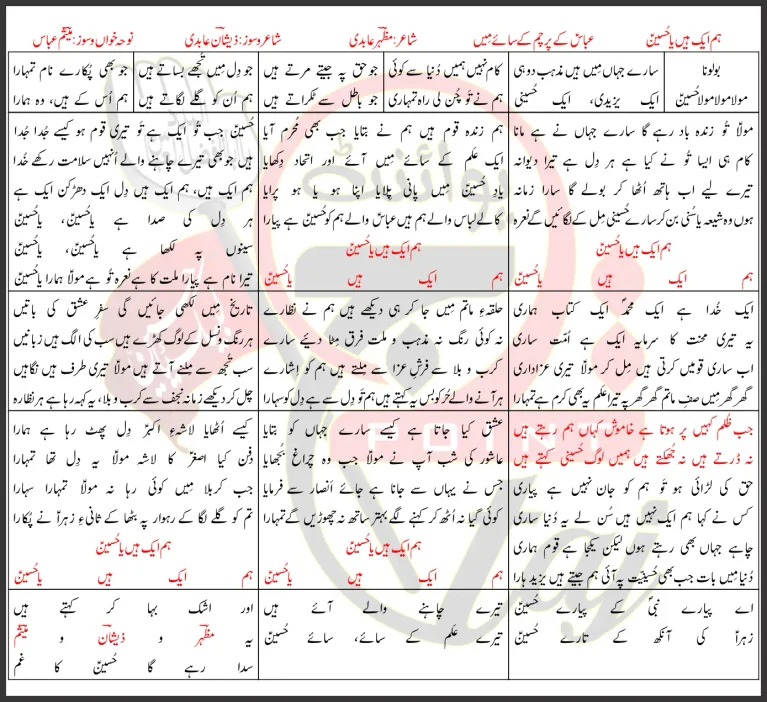 ہم ایک ہیں یا حُسینؑ
عباسؑ کے پرچم کے سائے مِیں
شاعر: مظہر عابدی
شاعر و سوز: ذیشان عابدی
نوحہ خواں و سوز: میثم عباس
بولو نا
مولا مولا مولا حُسینؑ
سارے جہاں مِیں ہیں مذہب دو ہی
ایک یزیدی، ایک حُسینی
کام نہیں ہمیں دُنیا سے کوئی
ہم نے تو چُن لی راہ تمہاری
جو حق پہ جیتے مرتے ہیں
جو باطل سے ٹکراتے ہیں
جو دِل مِیں تُجھے بساتے ہیں
ہم اُن کو گلے لگاتے ہیں
جو بھی پُکارے نام تمہارا
ہم اُس کے ہیں، وہ ہمارا
مولاؑ تو زندہ باد رہے گا سارے جہاں نے ہے مانا
کام ہی ایسا تُو نے کیا ہے ہر دِل ہے تیرا دیوانہ
تیرے لیے اب ہاتھ اُٹھا کر بولے گا سارا زمانہ
ہوں وہ شیعہ یا سُنی بن کر سارے حُسینی مِل کے لگائیں گے نعرہ
ہم ایک ہیں یا حُسینؑ
ہم ایک ہیں یا حُسینؑ
ہم زندہ قوم ہیں ہم نے بتایا جب بھی مُحرم آیا
ایک علم کے سائے مِیں آئے اور اتحاد دِکھایا
یادِ حُسینؑ مِیں پانی پلایا اپنا ہو یا ہو پرایا
کالے لباس والے ہم ہیں عباسؑ والے ہم کو حُسینؑ ہے پیارا
ہم ایک ہیں یا حُسینؑ
ہم ایک ہیں یا حُسینؑ
حُسینؑ جب تُو ایک ہے تو تیری قوم ہو کیسے جُدا جُدا
ہیں جو بھی تیرے چاہنے والے اُنہیں سلامت رکھے خُدا
ہم ایک ہیں، ہم ایک ہیں دِل ایک دھڑکن ایک ہے
ہر دِل کی صدا ہے یا حُسینؑ، یا حُسینؑ
سینوں پہ لکھا ہے یا حُسینؑ، یا حُسینؑ
تیرا نام ہے پیارا ملت کا ہے نعرہ تُو ہے مولاؑ ہمارا یا حُسینؑ
ایک خُدا ہے ایک محمدؐ ایک کتاب ہماری
یہ تیری محنت کا سرمایہ ایک ہے اُمت ساری
اب ساری قومیں کرتی ہیں مِل کر مولاؑ تیری عزاداری
گھر گھر مِیں صفِ ماتم گھر گھر پہ تیرا علم یہ بھی کرم ہے تمہارا
حلقہءِ ماتم مِیں جا کر ہی دیکھے ہیں ہم نے نظارے
نہ کوئی رنگ نہ مذہب و ملت فرق مِٹا دیئے سارے
کرب و بلا سے فرشِ عزا سے ملتے ہیں ہم کو اِشارے
ہر آنے والے حُر کو بس یہ کہتے ہیں ہم تُو دِل سے ہے دِل کو سہارا
تاریخ مِیں لکھی جائیں گی سفرِ عشق کی باتیں
ہر رنگ و نسل کے لوگ کھڑے ہیں سب کی الگ ہیں زبانیں
سب تُجھ سے ملنے آتے ہیں مولاؑ تیری طرف ہیں نگاہیں
چل کر دیکھے زمانہ نجف سے کرب و بلا، یہ کہہ رہا ہے ہر نظارہ
جب ظُلم کہیں پر ہوتا ہے خاموش کہاں ہم رہتے ہیں
نہ ڈرتے ہیں نہ جُھکتے ہیں ہمیں لوگ حُسینی کہتے ہیں
حق کی لڑائی ہو تو ہم کو جان نہیں ہے پیاری
کس نے کہا ہم ایک نہیں ہیں سُن لے یہ دُنیا ساری
چاہے جہاں بھی رہتے ہوں لیکن یکجا ہے قوم ہماری
دُنیا مِیں بات جب بھی حُسینیت پہ آئی ہم جیتے ہیں یزید ہارا
ہم ایک ہیں یا حُسینؑ
ہم ایک ہیں یا حُسینؑ
عشق کیا جاتا ہے کیسے سارے جہاں کو بتایا
عاشور کی شب آپ نے مولاؑ جب وہ چراغ بُجھایا
جس نے یہاں سے جانا ہے جائے انصار سے فرمایا
کوئی گیا نہ اُٹھ کر کہنے لگے بہتر ساتھ نہ چھوڑیں گے تمہارا
ہم ایک ہیں یا حُسینؑ
ہم ایک ہیں یا حُسینؑ
کیسے اُٹھایا لاشہءِ اکبرؑ دِل پھٹ رہا ہے ہمارا
دفن کیا اصغرؑ کا لاشہ مولاؑ یہ دِل تھا تمہارا
جب کربلا مِیں کوئی رہا نہ مولاؑ تمہارا سہارا
تم کو گلے لگا کے رہوار پہ بٹھا کے ثانیءِ زہراؑ نے پُکارا
ہم ایک ہیں یا حُسینؑ
ہم ایک ہیں یا حُسینؑ
اے پیارے نبیؐ کے پیارے حُسینؑ
زہراؑ کی آنکھ کے تارے حُسینؑ
تیرے چاہنے والے آئے ہیں
تیرے علم کے سائے، سائے حُسینؑ
اور اشک بہا کر کہتے ہیں
یہ مظہر و ذیشان و میثم
سدا رہے گا حُسینؑ کا غم
پوائنٹ
POINT